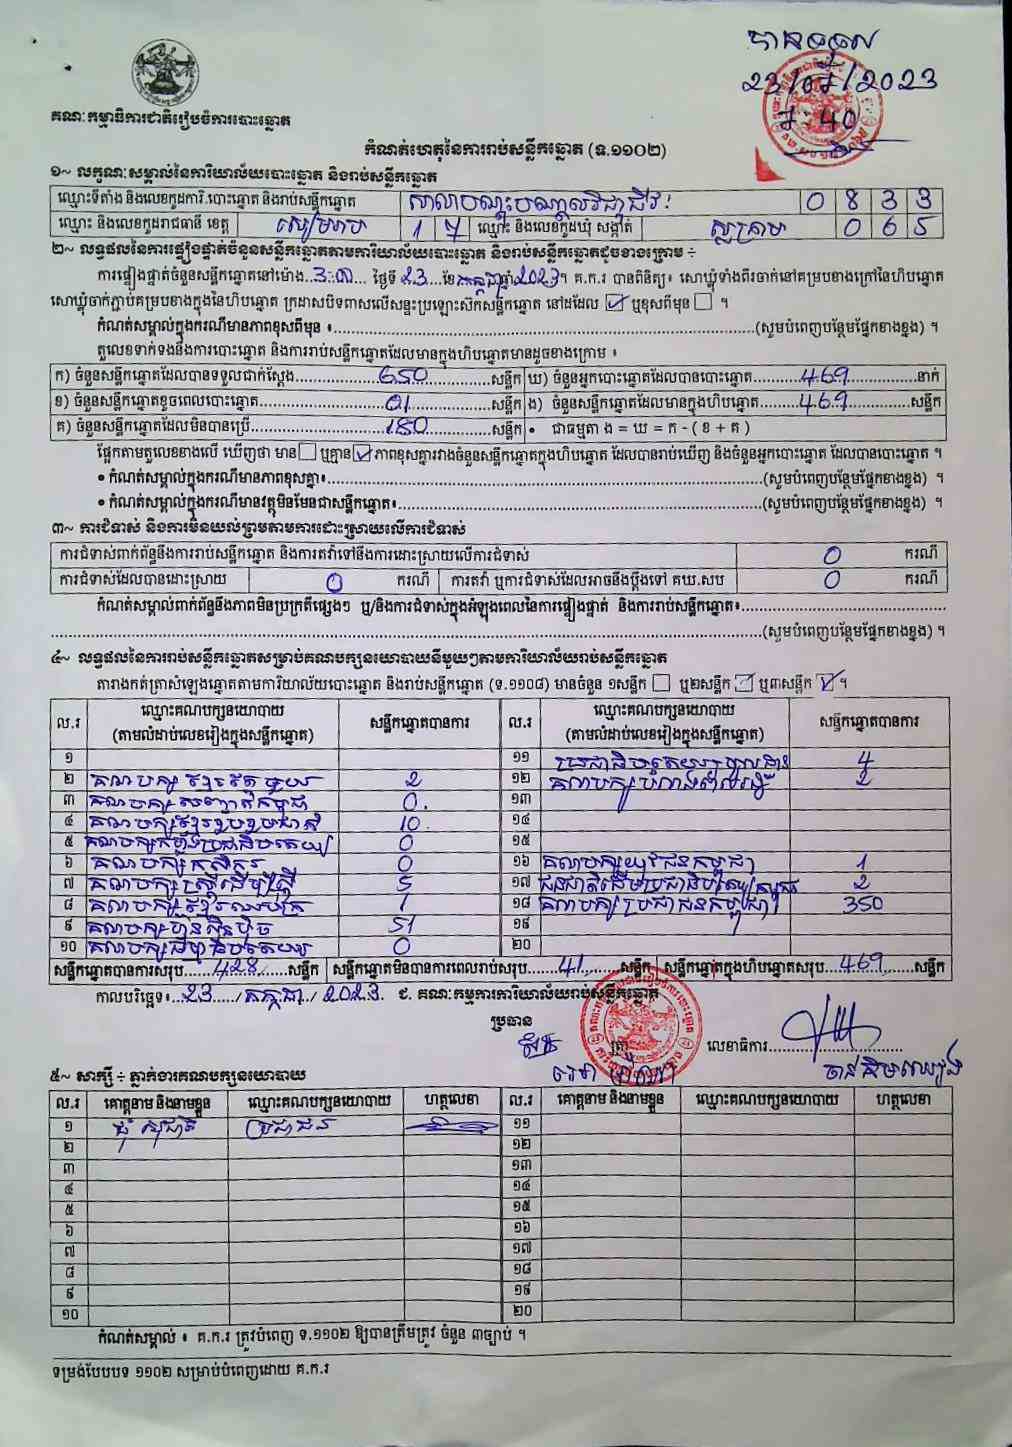 បានទទួល
23/07/2023
ម៉ 40
គណៈកម្មាធិការជាតិរៀបចំការបោះឆ្នោត
កំណត់ហេតុនៃការរាប់សន្លឹកឆ្នោត (ទ.១១០២)
១~ លក្ខណៈសម្គាល់នៃការិយាល័យបោះឆ្នោត និងរាប់សន្លឹកឆ្នោត
ឈ្មោះទីតាំង និងលេខកូដការិ.បោះឆ្នោត និងរាប់សន្លឹកឆ្នោត សាលាបណ្តុះបណ្តាលវិជ្ជាជីវៈ 0 8 3 3
ឈ្មោះ និងលេខកូដរាជធានី ខេត្ត សៀមរាប 1 7 ឈ្មោះ និងលេខកូដឃុំ សង្កាត់ ស្លក្រាម 0 6 5
២~ លទ្ធផលនៃការផ្ទៀងផ្ទាត់ចំនួនសន្លឹកឆ្នោតតាមការិយាល័យបោះឆ្នោត និងរាប់សន្លឹកឆ្នោតដូចខាងក្រោម ÷
ការផ្ទៀងផ្ទាត់ចំនួនសន្លឹកឆ្នោតនៅម៉ោង..... ថ្ងៃទី 23 ខែកក្កដា ឆ្នាំ2023។ គ.ក.រ បានពិនិត្យ៖ សោឃ្លុំទាំងពីរចាក់នៅគម្របខាងក្រៅនៃហិបឆ្នោត
សោឃ្លុំចាក់ភ្ជាប់គម្របខាងក្នុងនៃហិបឆ្នោត ក្រដាសបិទពាសលើសន្ទះប្រឡោះស៊កសន្លឹកឆ្នោត នៅដដែល ☑ ឬខុសពីមុន ☐ ។
កំណត់សម្គាល់ក្នុងករណីមានភាពខុសពីមុន ៖.....(សូមបំពេញបន្ថែមផ្នែកខាងខ្នង) ។
តួលេខទាក់ទងនឹងការបោះឆ្នោត និងការរាប់សន្លឹកឆ្នោតដែលមានក្នុងហិបឆ្នោតមានដូចខាងក្រោម ៖
ក) ចំនួនសន្លឹកឆ្នោតដែលបានទទួលជាក់ស្តែង.....650.....សន្លឹក ឃ) ចំនួនអ្នកបោះឆ្នោតដែលបានបោះឆ្នោត.....469.....នាក់
ខ) ចំនួនសន្លឹកឆ្នោតខូចពេលបោះឆ្នោត.....01.....សន្លឹក ង) ចំនួនសន្លឹកឆ្នោតដែលមានក្នុងហិបឆ្នោត.....469.....សន្លឹក
គ) ចំនួនសន្លឹកឆ្នោតដែលមិនបានប្រើ.....180.....សន្លឹក • ជាធម្មតា ង = ឃ = ក - ( ខ + គ )
ផ្អែកតាមតួលេខខាងលើ ឃើញថា មាន ☐ ឬគ្មាន ☑ ភាពខុសគ្នារវាងចំនួនសន្លឹកឆ្នោតក្នុងហិបឆ្នោត ដែលបានរាប់ឃើញ និងចំនួនអ្នកបោះឆ្នោត ដែលបានបោះឆ្នោត ។
• កំណត់សម្គាល់ក្នុងករណីមានភាពខុសគ្នា៖.....(សូមបំពេញបន្ថែមផ្នែកខាងខ្នង) ។
• កំណត់សម្គាល់ក្នុងករណីមានវត្ថុមិនមែនជាសន្លឹកឆ្នោត៖.....(សូមបំពេញបន្ថែមផ្នែកខាងខ្នង) ។
៣~ ការជំទាស់ និងការមិនយល់ព្រមតាមការដោះស្រាយលើការជំទាស់
ការជំទាស់ពាក់ព័ន្ធនឹងការរាប់សន្លឹកឆ្នោត និងការតវ៉ាទៅនឹងការដោះស្រាយលើការជំទាស់ 0 ករណី
ការជំទាស់ដែលបានដោះស្រាយ 0 ករណី ការតវ៉ា ឬការជំទាស់ដែលអាចនឹងប្តឹងទៅ គឃ.សប 0 ករណី
កំណត់សម្គាល់ពាក់ព័ន្ធនឹងភាពមិនប្រក្រតីផ្សេងៗ ឬ/និងការជំទាស់ក្នុងអំឡុងពេលនៃការផ្ទៀងផ្ទាត់ និងការរាប់សន្លឹកឆ្នោត៖.....
.....(សូមបំពេញបន្ថែមផ្នែកខាងខ្នង) ។
៤~ លទ្ធផលនៃការរាប់សន្លឹកឆ្នោតសម្រាប់គណបក្សនយោបាយនីមួយៗតាមការិយាល័យរាប់សន្លឹកឆ្នោត
តារាងកត់ត្រាសំឡេងឆ្នោតតាមការិយាល័យបោះឆ្នោត និងរាប់សន្លឹកឆ្នោត (ទ.១១០៨) មានចំនួន ១សន្លឹក ☐ ឬ២សន្លឹក ☐ ឬ៣សន្លឹក ☑ ។
ល.រ ឈ្មោះគណបក្សនយោបាយ (តាមលំដាប់លេខរៀងក្នុងសន្លឹកឆ្នោត) សន្លឹកឆ្នោតបានការ ល.រ ឈ្មោះគណបក្សនយោបាយ (តាមលំដាប់លេខរៀងក្នុងសន្លឹកឆ្នោត) សន្លឹកឆ្នោតបានការ
១ ១១ ប្រជាធិបតេយ្យមូលដ្ឋាន 4
២ គណបក្សខ្មែរតែមួយ 2 ១២ គណបក្ស 2
៣ គណបក្សសញ្ជាតិកម្ពុជា 0 ១៣
៤ គណបក្សខ្មែររួបរួមជាតិ 10 ១៤
៥ គណបក្សកម្លាំងប្រជាធិបតេយ្យ 0 ១៥
៦ គណបក្សកសិករ 0 ១៦ គណបក្សយុវជនកម្ពុជា 1
៧ គណបក្សស្ត្រីដើម្បីស្ត្រី 5 ១៧ ជនជាតិដើមប្រជាធិបតេយ្យកម្ពុជា 2
៨ គណបក្សខ្មែរឈប់ក្រ 1 ១៨ គណបក្សប្រជាជនកម្ពុជា 350
៩ គណបក្សហ៊្វុនស៊ិនប៉ិច 51 ១៩
១០ គណបក្សធម្មាធិបតេយ្យ 0 ២០
សន្លឹកឆ្នោតបានការសរុប.....428.....សន្លឹក សន្លឹកឆ្នោតមិនបានការពេលរាប់សរុប.....41.....សន្លឹក សន្លឹកឆ្នោតក្នុងហិបឆ្នោតសរុប.....469.....សន្លឹក
កាលបរិច្ឆេទ៖..23../កក្កដា/2023. ជ. គណៈកម្មការការិយាល័យរាប់សន្លឹកឆ្នោត
ប្រធាន
ត្រា លេខាធិការ.....
៥~ សាក្សី ÷ ភ្នាក់ងារគណបក្សនយោបាយ
ល.រ គោត្តនាម និងនាមខ្លួន ឈ្មោះគណបក្សនយោបាយ ហត្ថលេខា ល.រ គោត្តនាម និងនាមខ្លួន ឈ្មោះគណបក្សនយោបាយ ហត្ថលេខា
១ ធុំ សុជាតិ ប្រជាជន ១១
២ ១២
៣ ១៣
៤ ១៤
៥ ១៥
៦ ១៦
៧ ១៧
៨ ១៨
៩ ១៩
១០ ២០
កំណត់សម្គាល់ ៖ គ.ក.រ ត្រូវបំពេញ ទ.១១០២ ឱ្យបានត្រឹមត្រូវ ចំនួន ៣ច្បាប់ ។
ទម្រង់បែបបទ ១១០២ សម្រាប់បំពេញដោយ គ.ក.រ